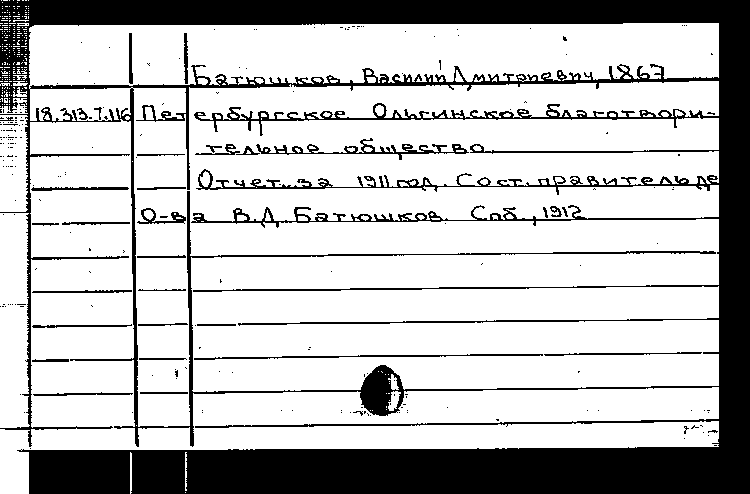 Батюшков, Василий Дмитриевич, 1867
18.313.7.116 Петербургское Ольгинское благотвори-
тельное общество.
Отчет.. за 1911 год. Сост. правитель де
О-ва В.Д. Батюшков. Спб., 1912